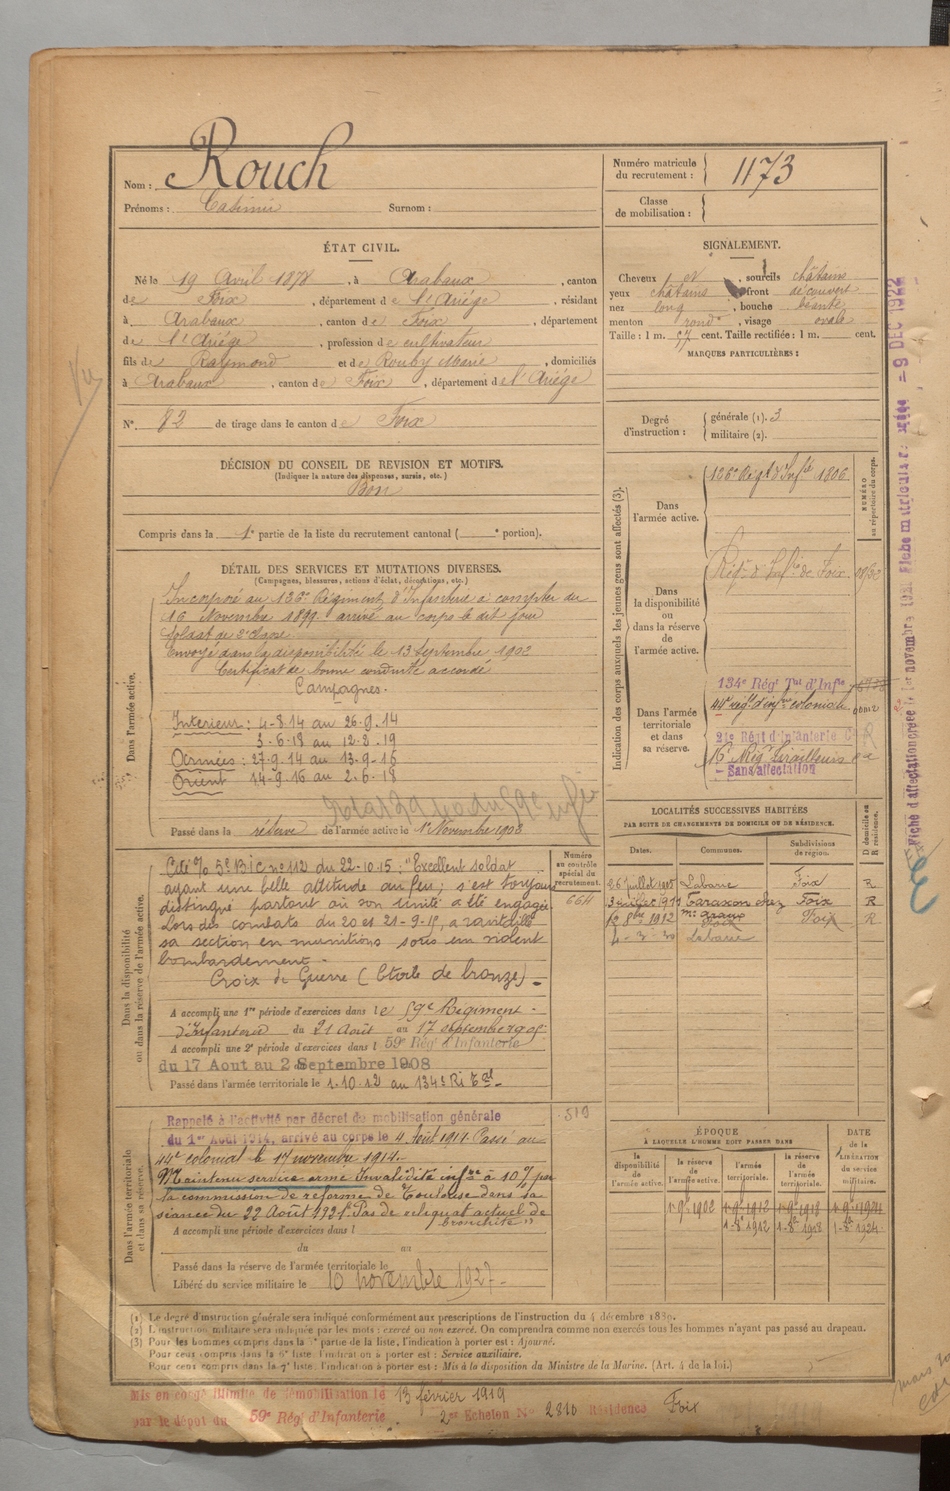 Nom : Rouch
Prénoms : Casimir Surnom :
Numéro matricule du recrutement : 1173
Classe de mobilisation :
ÉTAT CIVIL.
Né le 19 Avril 1878, à Arabaux, canton
de Foix, département de l'Ariège, résidant
à Arabaux, canton de Foix, département
de l'Ariège, profession de cultivateur
fils de Raymond et de Rouby Marie, domiciliés
à Arabaux, canton de Foix, département de l'Ariège
N° 82 de tirage dans le canton de Foix
SIGNALEMENT.
Cheveux et, sourcils châtains
yeux châtains, front découvert
nez long, bouche béante
menton rond, visage ovale
Taille : 1 m. 57 cent. Taille rectifiée : 1 m. cent.
MARQUES PARTICULIÈRES :
Degré d'instruction : générale (1). 3
militaire (2).
DÉCISION DU CONSEIL DE REVISION ET MOTIFS.
(Indiquer la nature des dispenses, sursis, etc.)
Bon
Compris dans la 1e partie de la liste du recrutement cantonal ( e portion).
DÉTAIL DES SERVICES ET MUTATIONS DIVERSES.
(Campagnes, blessures, actions d'éclat, décorations, etc.)
Dans l'armée active.
Incorporé au 126e Régiment d'Infanterie à compter du
16 Novembre 1899. arrivé au corps le dit jour
soldat de 2e classe.
Envoyé dans la disponibilité le 13 septembre 1902
Certificat de bonne conduite accordé
Campagnes.
Intérieur : 4-8.14 au 26.9.14
3-6.18 au 12-2-19
Armées : 27.9.14 au 13.9-16
Orient 14-9.16 au 2.6.18
Passé dans la réserve de l'armée active le 1er Novembre 1902
Indication des corps auxquels les jeunes gens sont affectés (3).
Dans l'armée active.
126e Régt d'Infie 1806
NUMÉRO au répertoire du corps.
Dans la disponibilité ou dans la réserve de l'armée active.
Régt d'Infie de Foix
Dans l'armée territoriale et dans sa réserve.
134e Régt Tal d'Infie
44e régt d'infie coloniale
21e Régt d'Infanterie C
16e Régt Tirailleurs
Sans affectation
LOCALITÉS SUCCESSIVES HABITÉES
PAR SUITE DE CHANGEMENTS DE DOMICILE OU DE RÉSIDENCE.
Dates. Communes. Subdivisions de région. D domicile ou R résidence.
26 juillet Labarre Foix R
3 juillet 1911 Tarascon chez Foix R
8bre 1912 Foix Foix R
4-3-30 Labarre
Dans la disponibilité ou dans la réserve de l'armée active.
Numéro au contrôle spécial du recrutement.
664
Cité % 5e B I C n° 112 du 22.10.15 : "Excellent soldat
ayant une belle attitude au feu ; s'est toujours
distingué partout où son unité a été engagée
Lors des combats du 20 et 21-9-15, a ravitaillé
sa section en munitions sous un violent
bombardement.
Croix de Guerre (Etoile de bronze)
A accompli une 1re période d'exercices dans le 59e Régiment
d'Infanterie du 21 Août au 17 septembre 1905
A accompli une 2e période d'exercices dans l 59e Rég. d'Infanterie
du 17 Aout au 2 Septembre 1908
Passé dans l'armée territoriale le 1.10.12 au 134e Ri Tal
Dans l'armée territoriale et dans sa réserve.
519
Rappelé à l'activité par décret de mobilisation générale
du 1er Août 1914, arrivé au corps le 4 Août 1914. Passé au
44e colonial le 17 novembre 1914.
Maintenu service armé Invalidité infre à 10% par
la commission de réforme de Toulouse dans sa
séance du 22 Août 1921 "Pas de reliquat actuel de
bronchite"
A accompli une période d'exercices dans l
du au
Passé dans la réserve de l'armée territoriale le
Libéré du service militaire le 10 novembre 1927
ÉPOQUE
A LAQUELLE L'HOMME DOIT PASSER DANS
la disponibilité de l'armée active. la réserve de l'armée active. l'armée territoriale. la réserve de l'armée territoriale.
DATE de la LIBÉRATION du service militaire.
1-9e 1902 1-9e 1912 1-9e 1918 1-9e 1924
1-8e 1912 1-8e 1918 1-8e 1924
(1) Le degré d'instruction générale sera indiqué conformément aux prescriptions de l'instruction du 4 décembre 1889.
(2) L'instruction militaire sera indiquée par les mots : exercé ou non exercé. On comprendra comme non exercés tous les hommes n'ayant pas passé au drapeau.
(3) Pour les hommes compris dans la 5e partie de la liste, l'indication à porter est : Ajourné.
Pour ceux compris dans la 6e liste, l'indication à porter est : Service auxiliaire.
Pour ceux compris dans la 7e liste, l'indication à porter est : Mis à la disposition du Ministre de la Marine. (Art. 4 de la loi.)
Mis en congé illimité de démobilisation le 13 février 1919
par le dépôt du 59e Régt d'Infanterie 2e Echelon N° 2810 Résidence Foix
Fiche d'affectation créée le 1er novembre Fiche matricule créée 9 DEC 1922